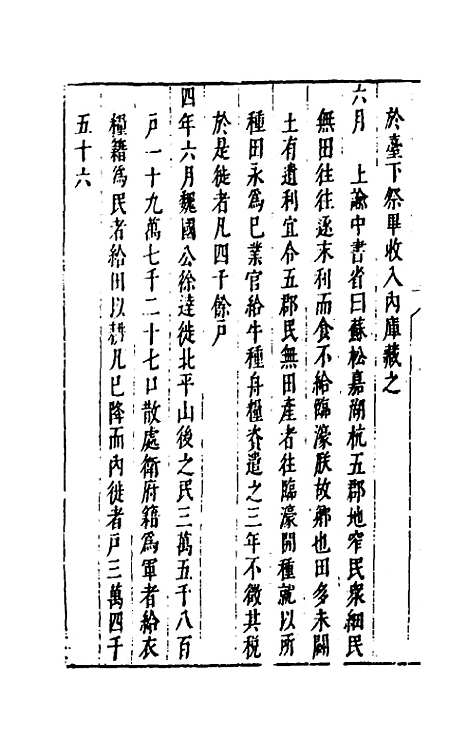 於臺下祭畢收入內庫藏之
六月　上諭中書省曰蘇松嘉湖杭五郡地窄民衆細民
無田往往逐末利而食不給臨濠朕故鄉也田多未闢
土有遺利宜令五郡民無田產者往臨濠開種就以所
種田永爲己業官給牛種舟糧資遣之三年不徵其稅
於是徙者凡四千餘戶
四年六月魏國公徐達徙北平山後之民三萬五千八百
戶一十九萬七千二十七口散處衛府籍爲軍者給衣
糧籍爲民者給田以耕凡已降而內徙者戶三萬四千
五十六